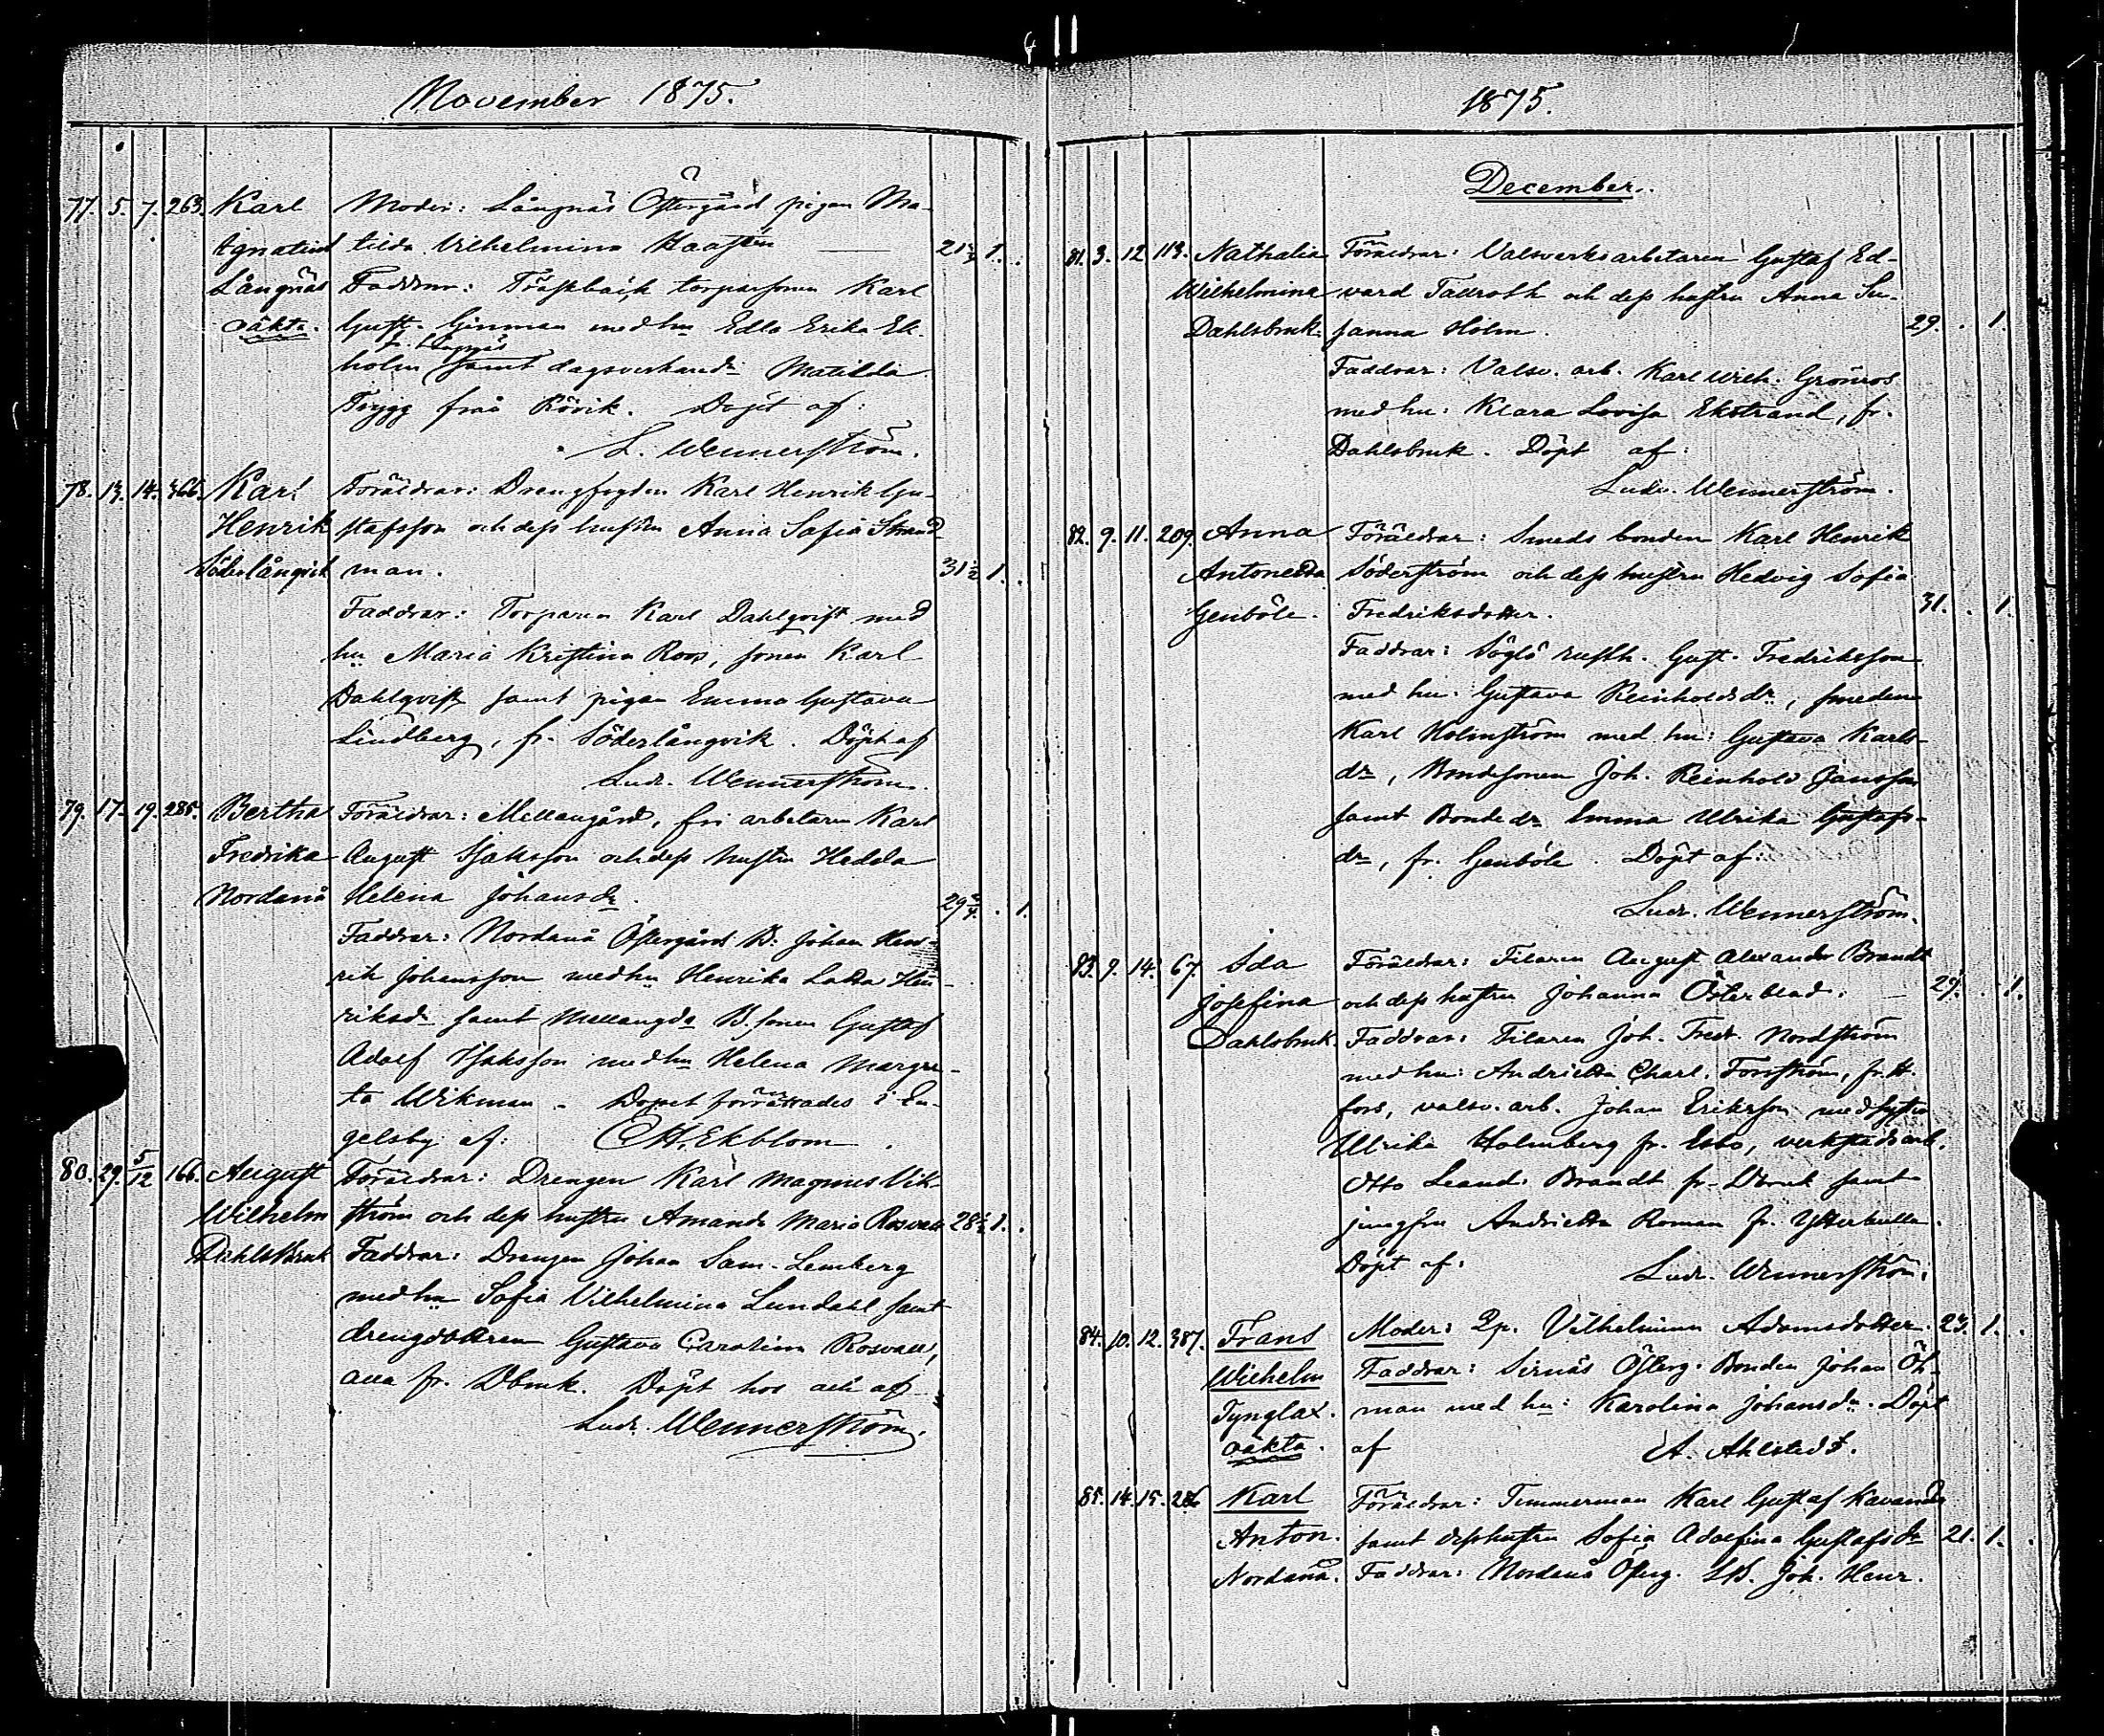 November 1875.
77. 5. 7. 263. Karl Moder: Långnäs Östergård pigan Ma-
Ignatius tilda Vilhelmina 21 1/2 1.
Långnäs Faddrar: Träskbäck torparsonen Karl
oäkta. Gust. Ginman med hu Edla Erika Ek
fr. Långnäs
holm samt dagsverkaredr Matilda
Trygg från Rövik. Döpt af:
L. Wennerström.
78. 13. 14. 366. Karl Föräldrar: Drengfogden Karl Henrik Gu-
Henrik stafsson och dess hustru Anna Sofia Strand
Söderlångvik man. 31 1/2 1.
Faddrar: Torparen Karl Dahlqvist med
hu Maria Kristina Roos, sonen Karl
Dahlqvist samt pigan Emma Gustava
Lindberg, fr. Söderlångvik. Döpt af
Ludv. Wennerström.
79. 17. 19. 285. Bertha Föräldrar: Mellangård, fri arbetaren Karl
Fredrika August Isaksson och dess hustru Hedda
Nordanå Helena Johansdr. 29 3/4. . 1.
Faddrar: Nordanå Östergård B: Johan Hen-
rik Johansson med hu Henrika Lovisa Hen-
riksdr samt Mellangds B. sonen Gustaf
Adolf Isaksson med hu Helena Margre-
ta Wikman. Dopet förrättades i En-
gelsby af: Ekblom.
80. 29. 5/12 166. August Föräldrar: Drengen Karl Magnus Vik-
Wilhelm ström och dess hustru Amanda Maria Rosvall 28 1/2 1.
Dahlsbruk Faddrar: Drengen Johan Sam. Lemberg
med hu Sofia Vilhelmina Lundahl samt
drengdottren Gustava Carolina Rosvall,
alla fr. Dbruk. Döpt hos och af
Ludv. Wennerström.
1875.
December.
81. 3. 12. 113. Nathalia Föräldrar: Valsverksarbetaren Gustaf Ed-
Wilhelmina vard Tallroth och dess hustru Anna Su-
Dahlsbruk. sanna Holm. 29. . 1.
Faddrar: Valsv. arb. Karl Wilh. Grönros
med hu: Klara Lovisa Ekstrand, fr.
Dahlsbruk. Döpt af:
Ludv. Wennerström.
82. 9. 11. 209. Anna Föräldrar: Smeds bonden Karl Henrik
Antonetta Söderström och dess hustru Hedvig Sofia
Genböle. Fredriksdotter. 31. . 1.
Faddrar: Söglö rusth. Gust. Fredriksson
med hu. Gustava Reinholdsdr, smeden
Karl Holmström med hu: Gustava Karls-
dr, Bondesonen Joh. Reinhold Jansson
samt Bondedr Emma Ulrika Gustafs-
dr, fr. Genböle. Döpt af:
Ludv. Wennerström.
83. 9. 14. 67. Ida Föräldrar: Filaren August Alexander Brandt
Josefina och dess hustru Johanna Österblad. 29. . 1.
Dahlsbruk. Faddrar: Filaren Joh. Fredr. Nordström
med hu: Andrietta Charl. Forsström, fr. H.
fors, valsv. arb. Johan Eriksson med hustru
Ulrika Holmberg fr. Esbo, verkstads arb.
Otto Leand. Brandt fr. Dbruk samt
jungfru Andrietta Roman fr. Ytterkulla.
Döpt af: Ludv. Wennerström.
84. 10. 12. 387. Frans Moder: Qp. Vilhelmina Adamsdotter. 23. 1.
Wilhelm Faddrar: Sirnäs Österg. Bonden Johan Öh-
Tynglax. man med hu: Karolina Johansdr. Döpt
oäkta. af A. Ahlstedt.
85. 14. 15. 286 Karl Föräldrar: Timmerman Karl Gustaf
Anton. samt dess hustru Sofia Adolfina Gustafsdr 21. 1.
Nordanå. Faddrar: Nordanå Österg. Joh. Henr.